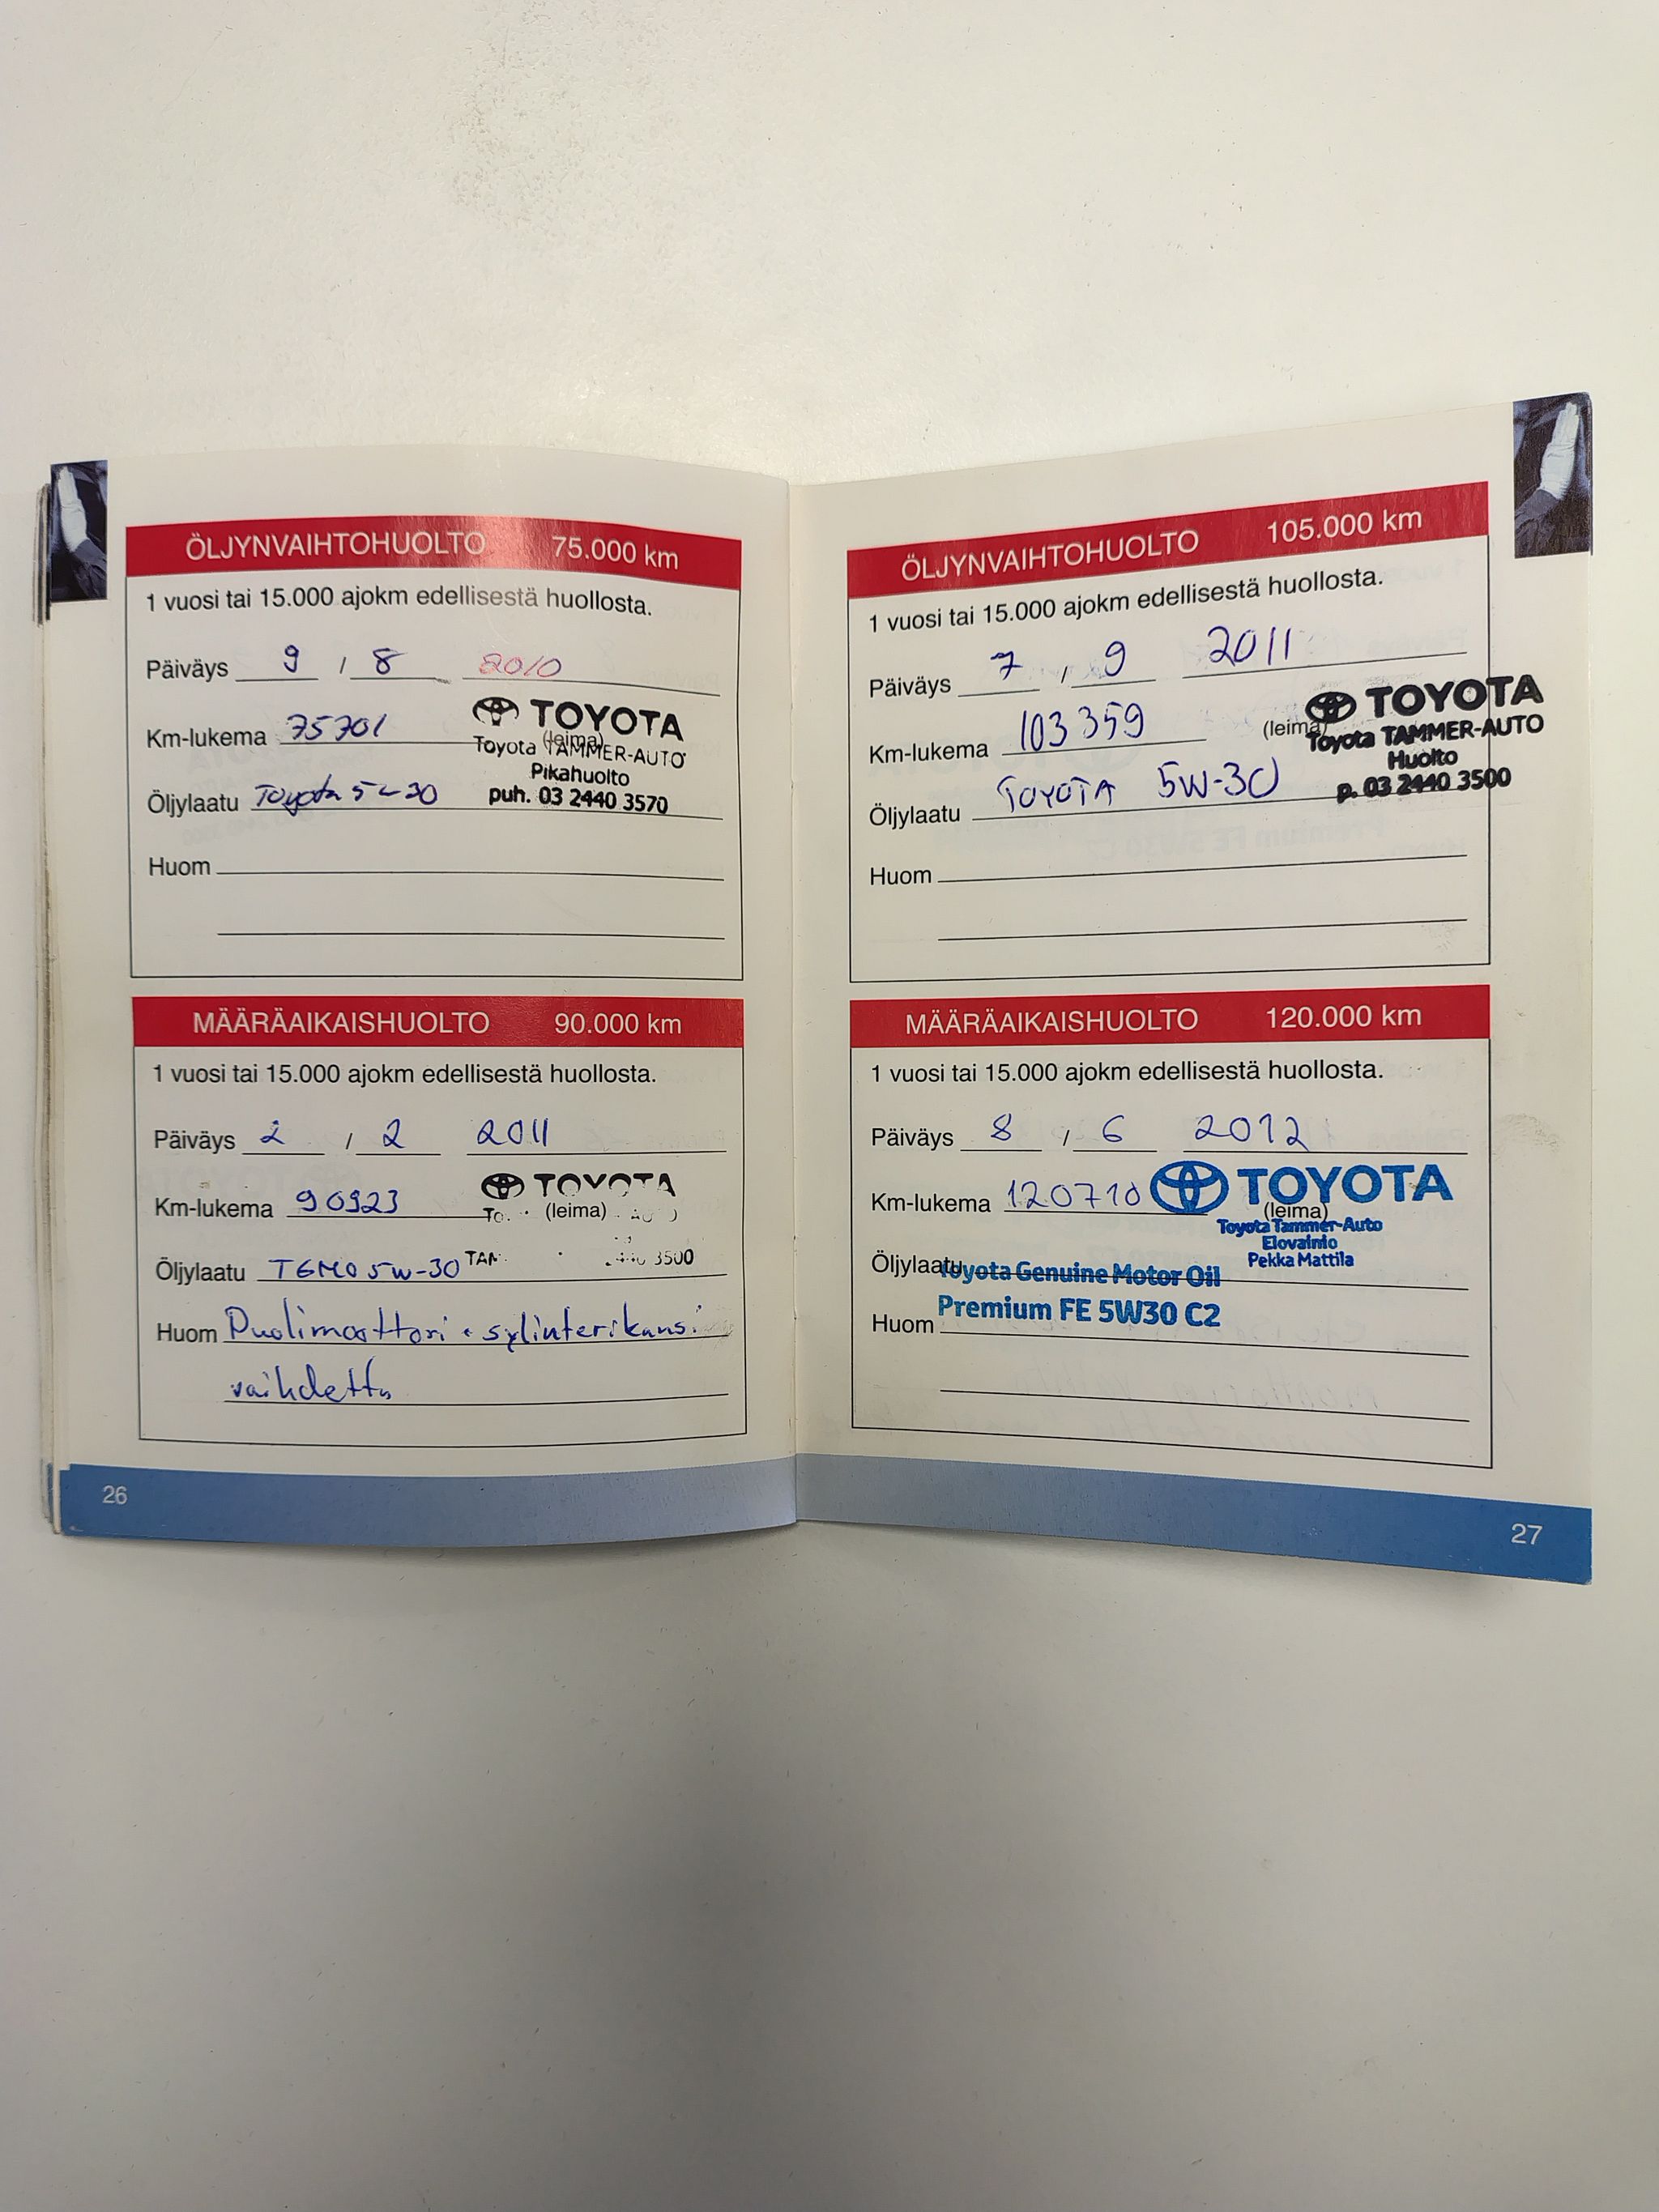 ÖLJYNVAIHTOHUOLTO 75.000 km
1 vuosi tai 15.000 ajokm edellisestä huollosta.
Päiväys 9 / 8 2010
Km-lukema 75701
TOYOTA
(leima)
Toyota TAMMER-AUTO
Pikahuolto
puh. 03 2440 3570
Öljylaatu Toyota 5w-30
Huom
MÄÄRÄAIKAISHUOLTO 90.000 km
1 vuosi tai 15.000 ajokm edellisestä huollosta.
Päiväys 2 / 2 2011
Km-lukema 90923
TOYOTA
(leima)
3500
Öljylaatu TGMO 5w-30
Huom Puolimoottori + sylinterikansi
vaihdettu
26
ÖLJYNVAIHTOHUOLTO 105.000 km
1 vuosi tai 15.000 ajokm edellisestä huollosta.
Päiväys 7 / 9 2011
Km-lukema 103359
(leima)
TOYOTA
Toyota TAMMER-AUTO
Huolto
p. 03 2440 3500
Öljylaatu TOYOTA 5W-30
Huom
MÄÄRÄAIKAISHUOLTO 120.000 km
1 vuosi tai 15.000 ajokm edellisestä huollosta.
Päiväys 8 / 6 2012
Km-lukema 120710
TOYOTA
(leima)
Toyota Tammer-Auto
Elovainio
Pekka Mattila
Öljylaatu Toyota Genuine Motor Oil
Premium FE 5W30 C2
Huom
27